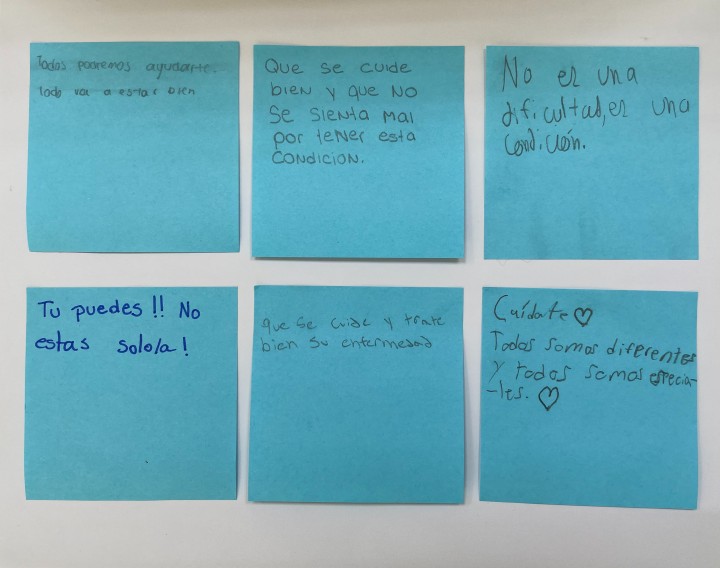 Todos podremos ayudarte.
todo va a estar bien
Que se cuide
bien y que NO
Se sienta mal
por tener esta
CONDICION.
No es una
dificultad, es una
Condición.
Tu puedes!! No
estas solo/a!
que se cuide y trate
bien su enfermedad
Cuídate ♡
Todos somos diferentes
y todos somos especia-
-les. ♡